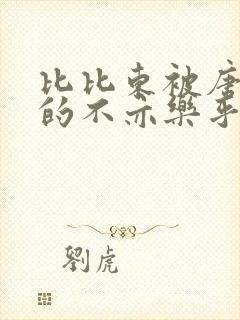 比比东被唐
的不亦樂乎
劉虎